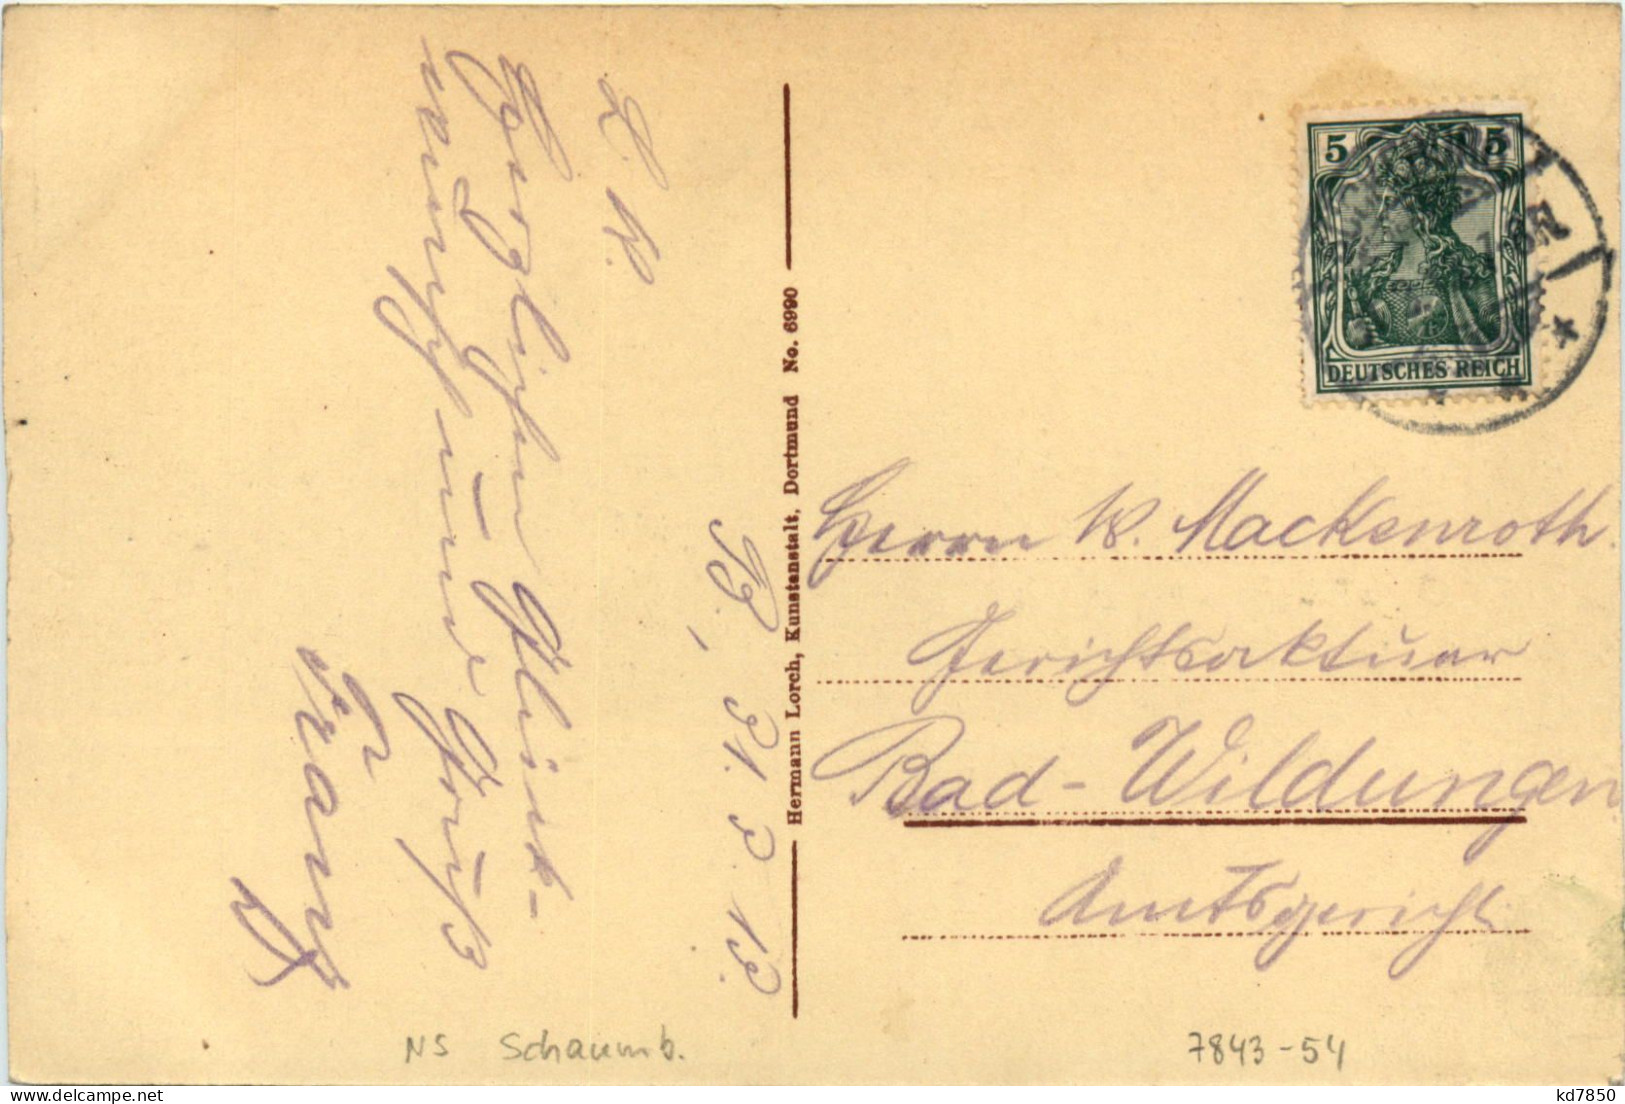 B., 31. 3. 13.
L. W.
Herzlichen Glück-
wunsch und Gruß
Franz
Hermann Lorch, Kunstanstalt, Dortmund No. 6990
5 5
DEUTSCHES REICH
Herrn W. Mackenroth
Gerichtsaktuar
Bad-Wildungen
Amtsgericht.
NS Schaumb.
7843-54
kd7850